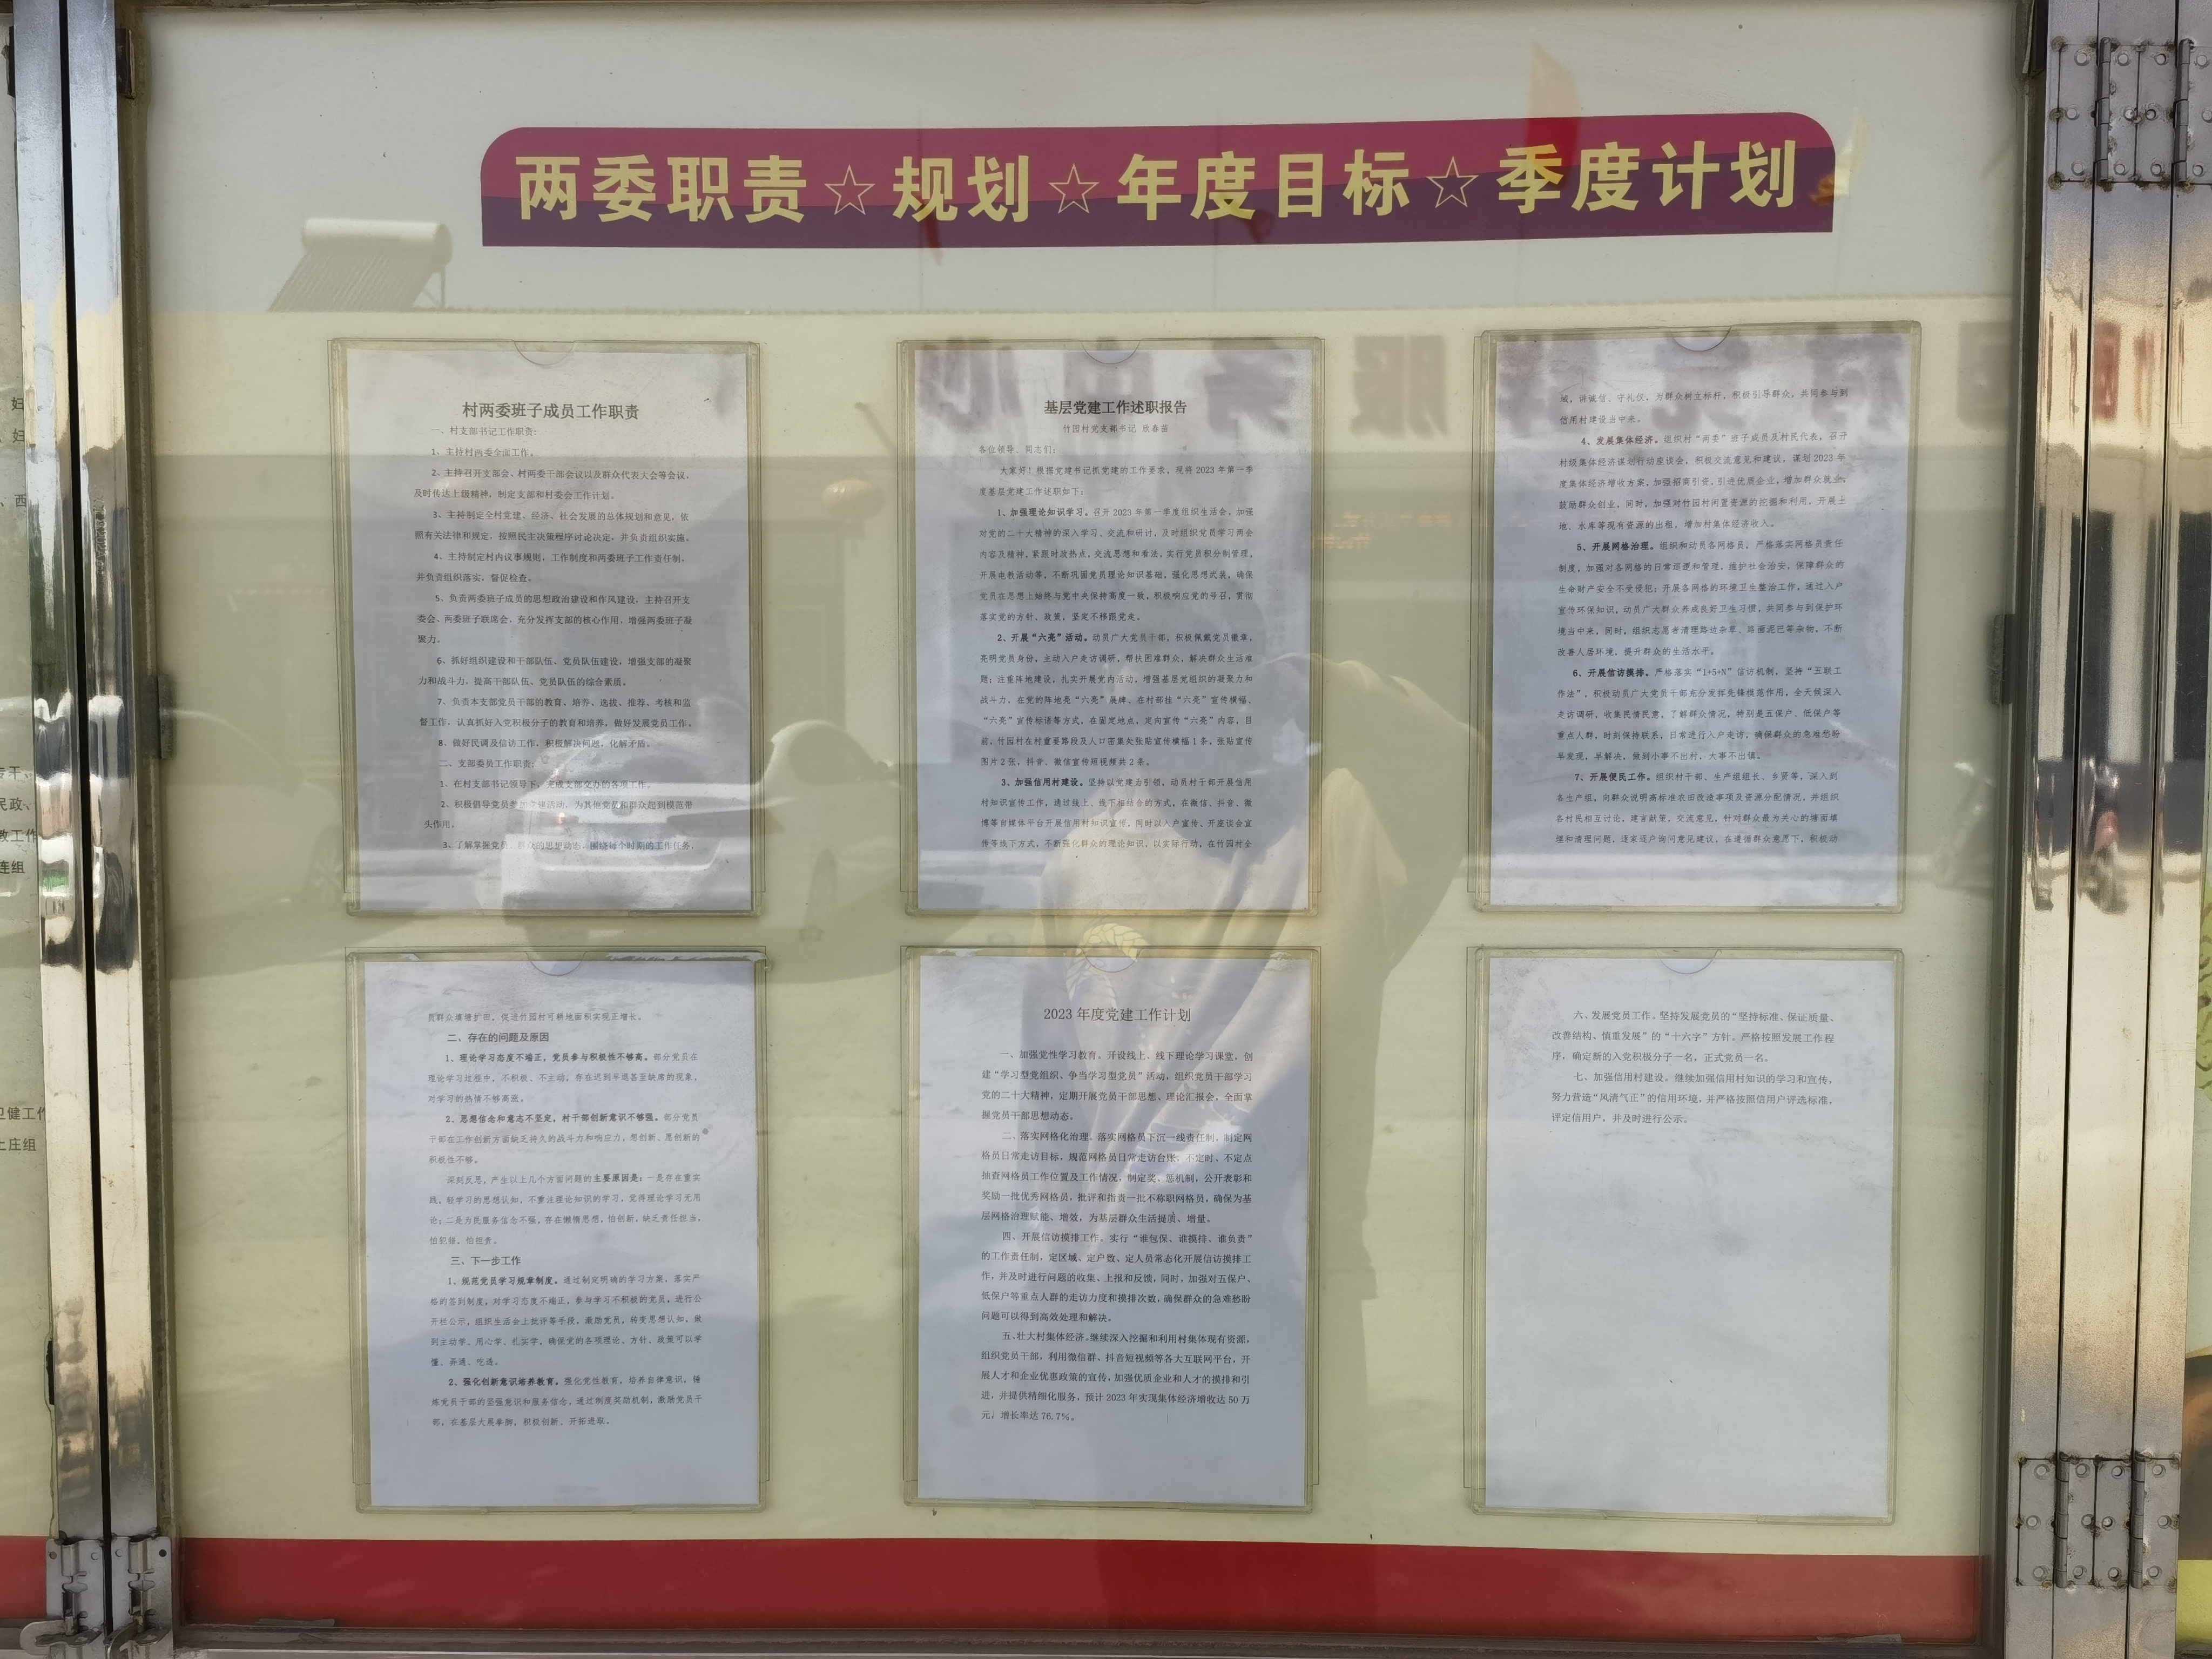 两委职责☆规划☆年度目标☆季度计划
村两委班子成员工作职责
一、村支部书记工作职责:
1、主持村两委全面工作。
2、主持召开支部会、村两委干部会议以及群众代表大会等会议,
及时传达上级精神,制定支部和村委会工作计划。
3、主持制定全村党建、经济、社会发展的总体规划和意见,依
照有关法律和规定,按照民主决策程序讨论决定,并负责组织实施。
4、主持制定村内议事规则,工作制度和两委班子工作责任制,
并负责组织落实,督促检查。
5、负责两委班子成员的思想政治建设和作风建设,主持召开支
委会、两委班子联席会,充分发挥支部的核心作用,增强两委班子凝
聚力。
6、抓好组织建设和干部队伍、党员队伍建设,增强支部的凝聚
力和战斗力,提高干部队伍、党员队伍的综合素质。
7、负责本支部党员干部的教育、培养、选拔、推荐、考核和监
督工作,认真抓好入党积极分子的教育和培养,做好发展党员工作。
8、做好民调及信访工作,积极解决问题,化解矛盾。
二、支部委员工作职责:
1、在村支部书记领导下,完成支部交办的各项工作。
2、积极倡导党员参加党建活动,为其他党员和群众起到模范带
头作用。
3、了解掌握党员、群众的思想动态,围绕每个时期的工作任务,
基层党建工作述职报告
竹园村党支部书记 欣春苗
各位领导、同志们:
大家好!根据党建书记抓党建的工作要求,现将 2023 年第一季
度基层党建工作述职如下:
1、加强理论知识学习。召开 2023 年第一季度组织生活会,加强
对党的二十大精神的深入学习、交流和研讨,及时组织党员学习两会
内容及精神,紧跟时政热点,交流思想和看法,实行党员积分制管理,
开展电教活动等,不断巩固党员理论知识基础,强化思想武装,确保
党员在思想上始终与党中央保持高度一致,积极响应党的号召,贯彻
落实党的方针、政策,坚定不移跟党走。
2、开展“六亮”活动。动员广大党员干部,积极佩戴党员徽章,
亮明党员身份,主动入户走访调研,帮扶困难群众,解决群众生活难
题;注重阵地建设,扎实开展党内活动,增强基层党组织的凝聚力和
战斗力,在党的阵地亮“六亮”展牌、在村部挂“六亮”宣传横幅、
“六亮”宣传标语等方式,在固定地点,定向宣传“六亮”内容,目
前,竹园村在村重要路段及人口密集处张贴宣传横幅 1 条,张贴宣传
图片 2 张,抖音、微信宣传短视频共 2 条。
3、加强信用村建设。坚持以党建为引领,动员村干部开展信用
村知识宣传工作,通过线上、线下相结合的方式,在微信、抖音、微
博等自媒体平台开展信用村知识宣传,同时以入户宣传、开座谈会宣
传等线下方式,不断强化群众的理论知识,以实际行动,在竹园村全
域,讲诚信、守礼仪,为群众树立标杆,积极引导群众,共同参与到
信用村建设当中来。
4、发展集体经济。组织村“两委”班子成员及村民代表,召开
村级集体经济谋划行动座谈会,积极交流意见和建议,谋划 2023 年
度集体经济增收方案,加强招商引资,引进优质企业,增加群众就业,
鼓励群众创业,同时,加强对竹园村闲置资源的挖掘和利用,开展土
地、水库等现有资源的出租,增加村集体经济收入。
5、开展网格治理。组织和动员各网格员,严格落实网格员责任
制度,加强对各网格的日常巡逻和管理,维护社会治安,保障群众的
生命财产安全不受侵犯;开展各网格的环境卫生整治工作,通过入户
宣传环保知识,动员广大群众养成良好卫生习惯,共同参与到保护环
境当中来,同时,组织志愿者清理路边杂草、路面泥巴等杂物,不断
改善人居环境,提升群众的生活水平。
6、开展信访摸排。严格落实“1+5+N”信访机制,坚持“五联工
作法”,积极动员广大党员干部充分发挥先锋模范作用,全天候深入
走访调研,收集民情民意,了解群众情况,特别是五保户、低保户等
重点人群,时刻保持联系,日常进行入户走访,确保群众的急难愁盼
早发现,早解决,做到小事不出村,大事不出镇。
7、开展便民工作。组织村干部、生产组组长、乡贤等,深入到
各生产组,向群众说明高标准农田改造事项及资源分配情况,并组织
各村民相互讨论,建言献策,交流意见,针对群众最为关心的塘面填
埋和清理问题,逐家逐户询问意见建议,在遵循群众意愿下,积极动
员群众填塘扩田,促进竹园村可耕地面积实现正增长。
二、存在的问题及原因
1、理论学习态度不端正,党员参与积极性不够高。部分党员在
理论学习过程中,不积极、不主动,存在迟到早退甚至缺席的现象,
对学习的热情不够高涨。
2、思想信念和意志不坚定,村干部创新意识不够强。部分党员
干部在工作创新方面缺乏持久的战斗力和响应力,想创新、愿创新的
积极性不够。
深刻反思,产生以上几个方面问题的主要原因是:一是存在重实
践,轻学习的思想认知,不重注理论知识的学习,觉得理论学习无用
论;二是为民服务信念不强,存在懒惰思想,怕创新,缺乏责任担当,
怕犯错,怕担责。
三、下一步工作
1、规范党员学习规章制度。通过制定明确的学习方案,落实严
格的签到制度,对学习态度不端正,参与学习不积极的党员,进行公
开栏公示,组织生活会上批评等手段,激励党员,转变思想认知,做
到主动学、用心学、扎实学,确保党的各项理论、方针、政策可以学
懂、弄通、吃透。
2、强化创新意识培养教育。强化党性教育,培养自律意识,锤
炼党员干部的坚强意识和服务信念,通过制度奖励机制,激励党员干
部,在基层大展拳脚,积极创新、开拓进取。
2023 年度党建工作计划
一、加强党性学习教育。开设线上、线下理论学习课堂,创
建“学习型党组织、争当学习型党员”活动,组织党员干部学习
党的二十大精神,定期开展党员干部思想、理论汇报会,全面掌
握党员干部思想动态。
二、落实网格化治理。落实网格员下沉一线责任制,制定网
格员日常走访目标,规范网格员日常走访台账,不定时、不定点
抽查网格员工作位置及工作情况,制定奖、惩机制,公开表彰和
奖励一批优秀网格员,批评和指责一批不称职网格员,确保为基
层网格治理赋能、增效,为基层群众生活提质、增量。
四、开展信访摸排工作。实行“谁包保、谁摸排、谁负责”
的工作责任制,定区域、定户数、定人员常态化开展信访摸排工
作,并及时进行问题的收集、上报和反馈,同时,加强对五保户、
低保户等重点人群的走访力度和摸排次数,确保群众的急难愁盼
问题可以得到高效处理和解决。
五、壮大村集体经济。继续深入挖掘和利用村集体现有资源,
组织党员干部,利用微信群、抖音短视频等各大互联网平台,开
展人才和企业优惠政策的宣传,加强优质企业和人才的摸排和引
进,并提供精细化服务,预计 2023 年实现集体经济增收达 50 万
元,增长率达 76.7%。
六、发展党员工作。坚持发展党员的“坚持标准、保证质量、
改善结构、慎重发展”的“十六字”方针。严格按照发展工作程
序,确定新的入党积极分子一名,正式党员一名。
七、加强信用村建设。继续加强信用村知识的学习和宣传,
努力营造“风清气正”的信用环境,并严格按照信用户评选标准,
评定信用户,并及时进行公示。